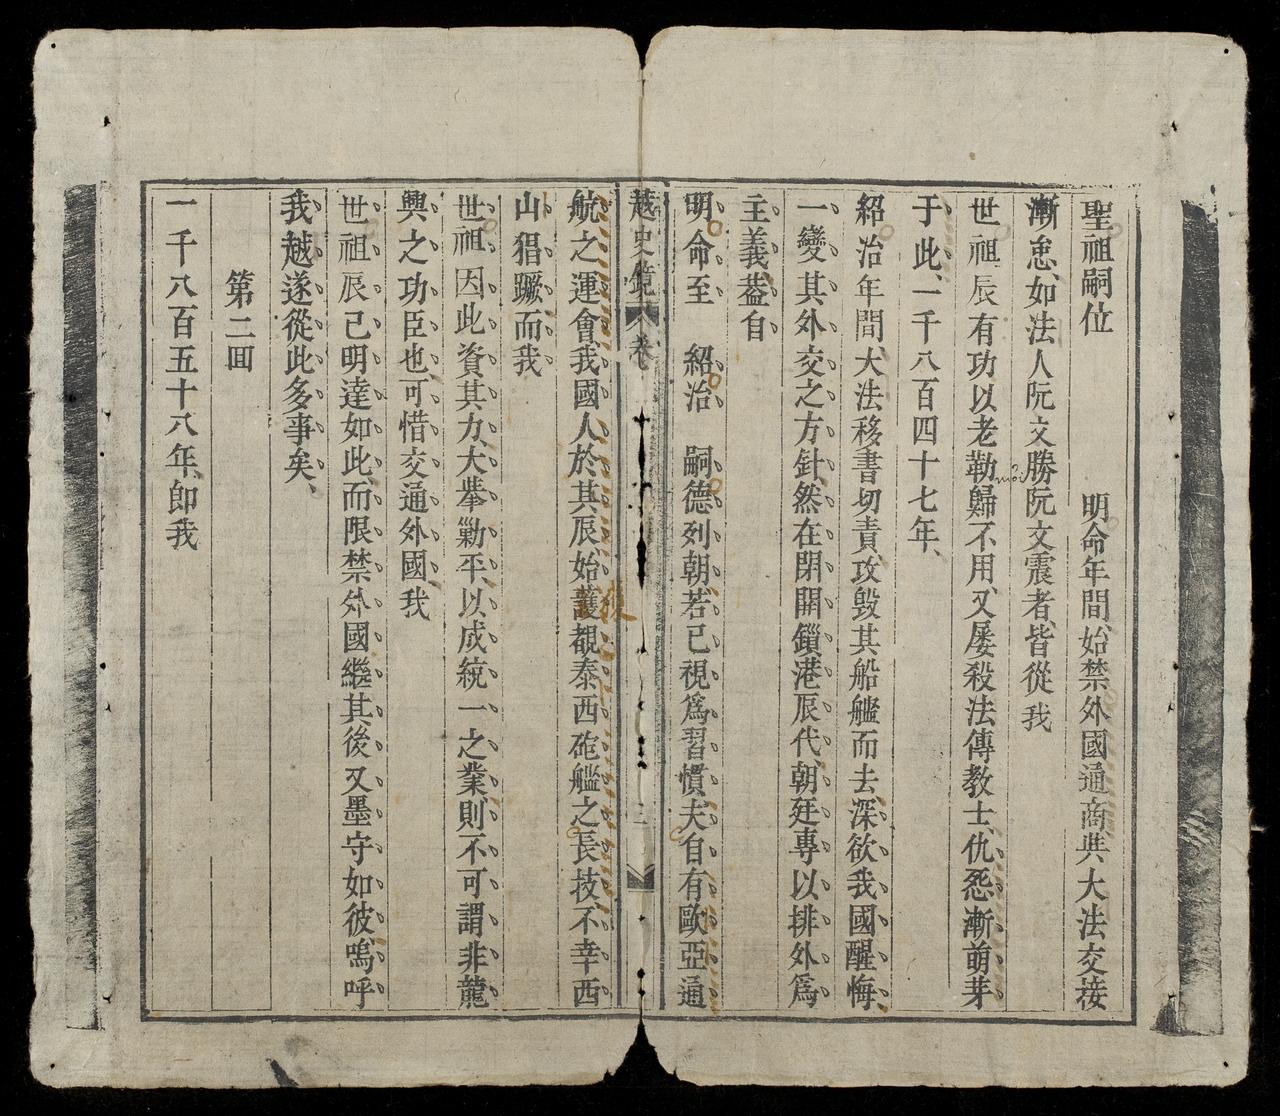 聖祖嗣位 明命年間、始禁外國通商、與大法交接
漸怠、如法人阮文勝阮文震者、皆從我
世祖辰有功以老勒歸不用、又屡殺法傳教士、仇怨漸萌芽
于此、一千八百四十七年、
紹治年間、大法移書切責、攻毀其船艦而去、深欲我國醒悔
一變其外交之方針、然在閉關鎖港辰代、朝廷專以排外爲
主義、葢自
明命至 紹治 嗣德列朝、若已視爲習慣、夫自有歐亞通
越史鏡 卷 二
航之運會、我國人於其辰始護覩泰西砲艦之長技、不幸西
後
山猖蹶、而我
世祖因此資其力、大擧勦平、以成統一之業、則不可謂非龍
興之功臣也、可惜交通外國、我
世祖辰已明達如此、而限禁外國、繼其後又墨守如彼、嗚呼
我越遂從此多事矣、
第二回
一千八百五十八年、卽我